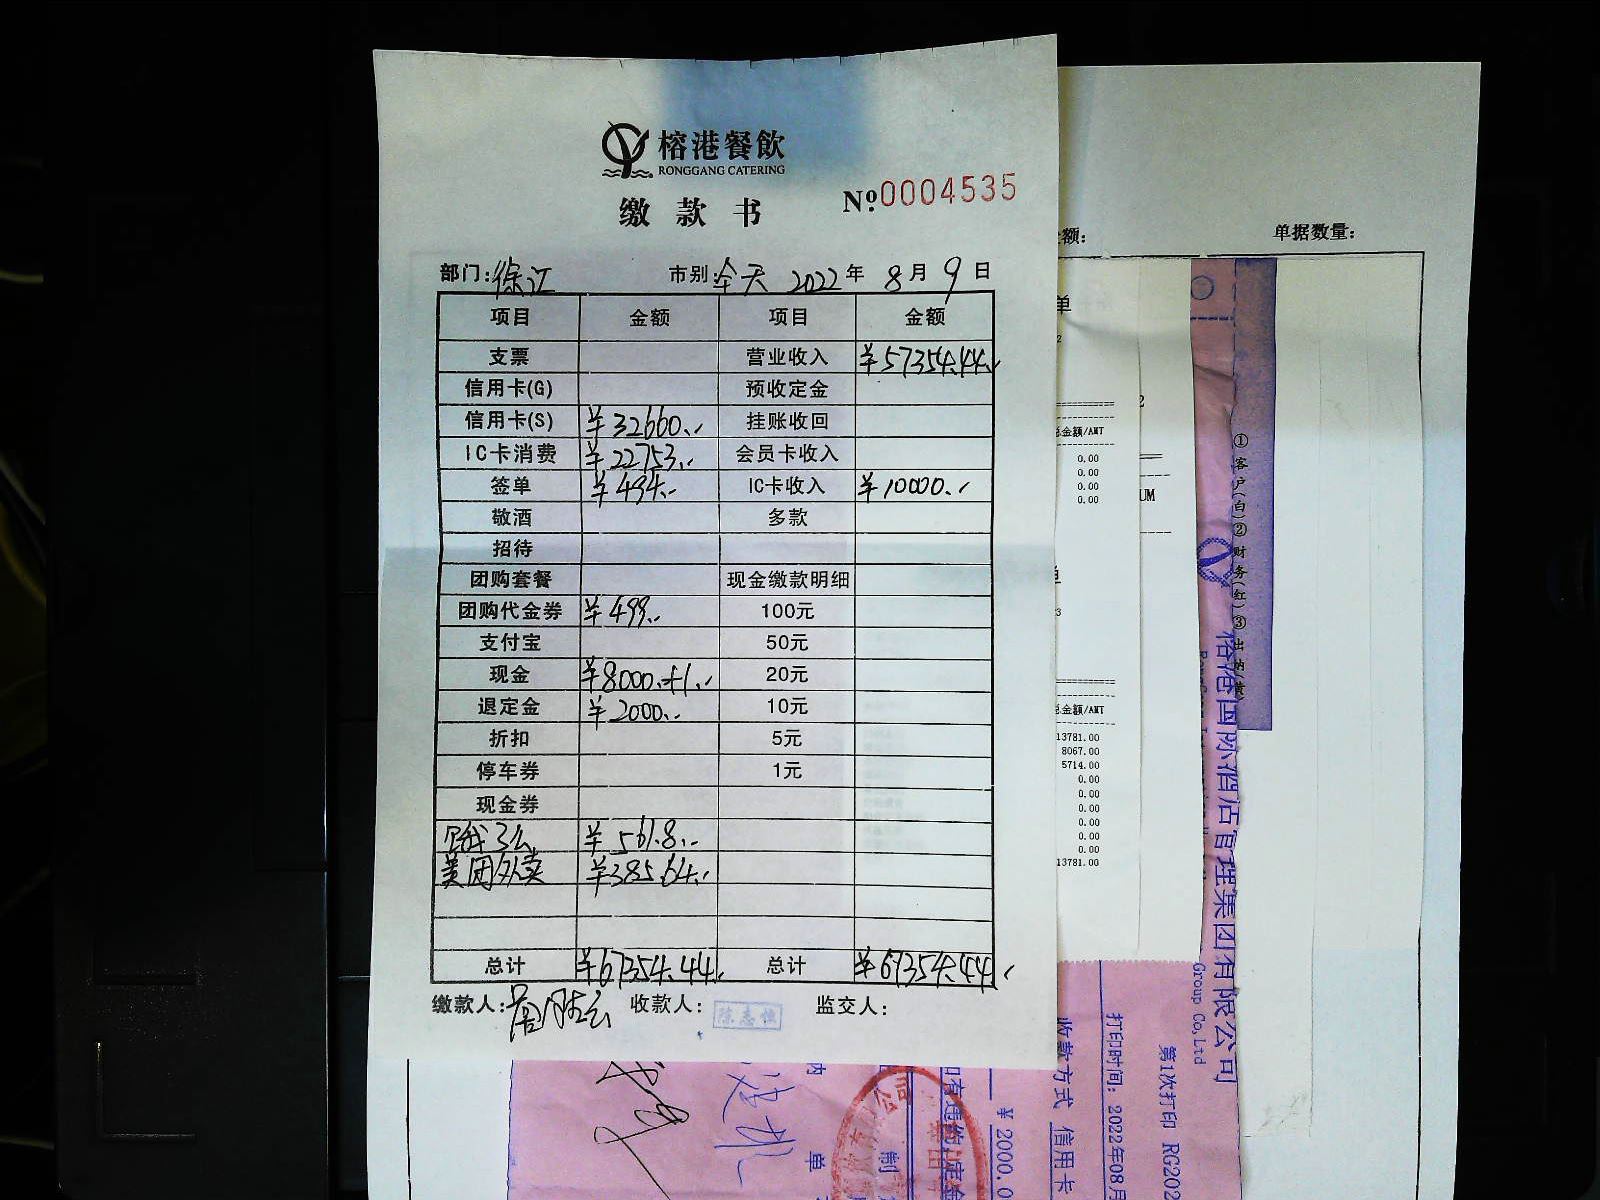 榕港餐飲
RONGGANG CATERING
缴款书
№0004535
部门:徐汇 市别:全天 2022年8月9日
项目 金额 项目 金额
支票 营业收入 ¥57354.44
信用卡(G) 预收定金
信用卡(S) ¥32660.- 挂账收回
IC卡消费 ¥22753.- 会员卡收入
签单 ¥494.- IC卡收入 ¥10000.-
敬酒 多款
招待
团购套餐 现金缴款明细
团购代金券 ¥499.- 100元
支付宝 50元
现金 20元
退定金 ¥2000.- 10元
折扣 5元
停车券 1元
现金券
饿了么 ¥561.8
美团外卖 ¥385.64
总计 ¥67354.44 总计 ¥67354.44
缴款人: 收款人: 监交人:
额:
单据数量:
单
总金额/AMT
0.00
0.00
0.00
0.00
UM
总金额/AMT
13781.00
8067.00
5714.00
0.00
0.00
0.00
0.00
0.00
0.00
13781.00
①客户(白)②财务(红)③出纳(黄)
榕港国际酒店管理集团有限公司
Group Co,Ltd
第1次打印 RG202
打印时间: 2022年08月
收款方式 信用卡
¥2000.0
制
单
内